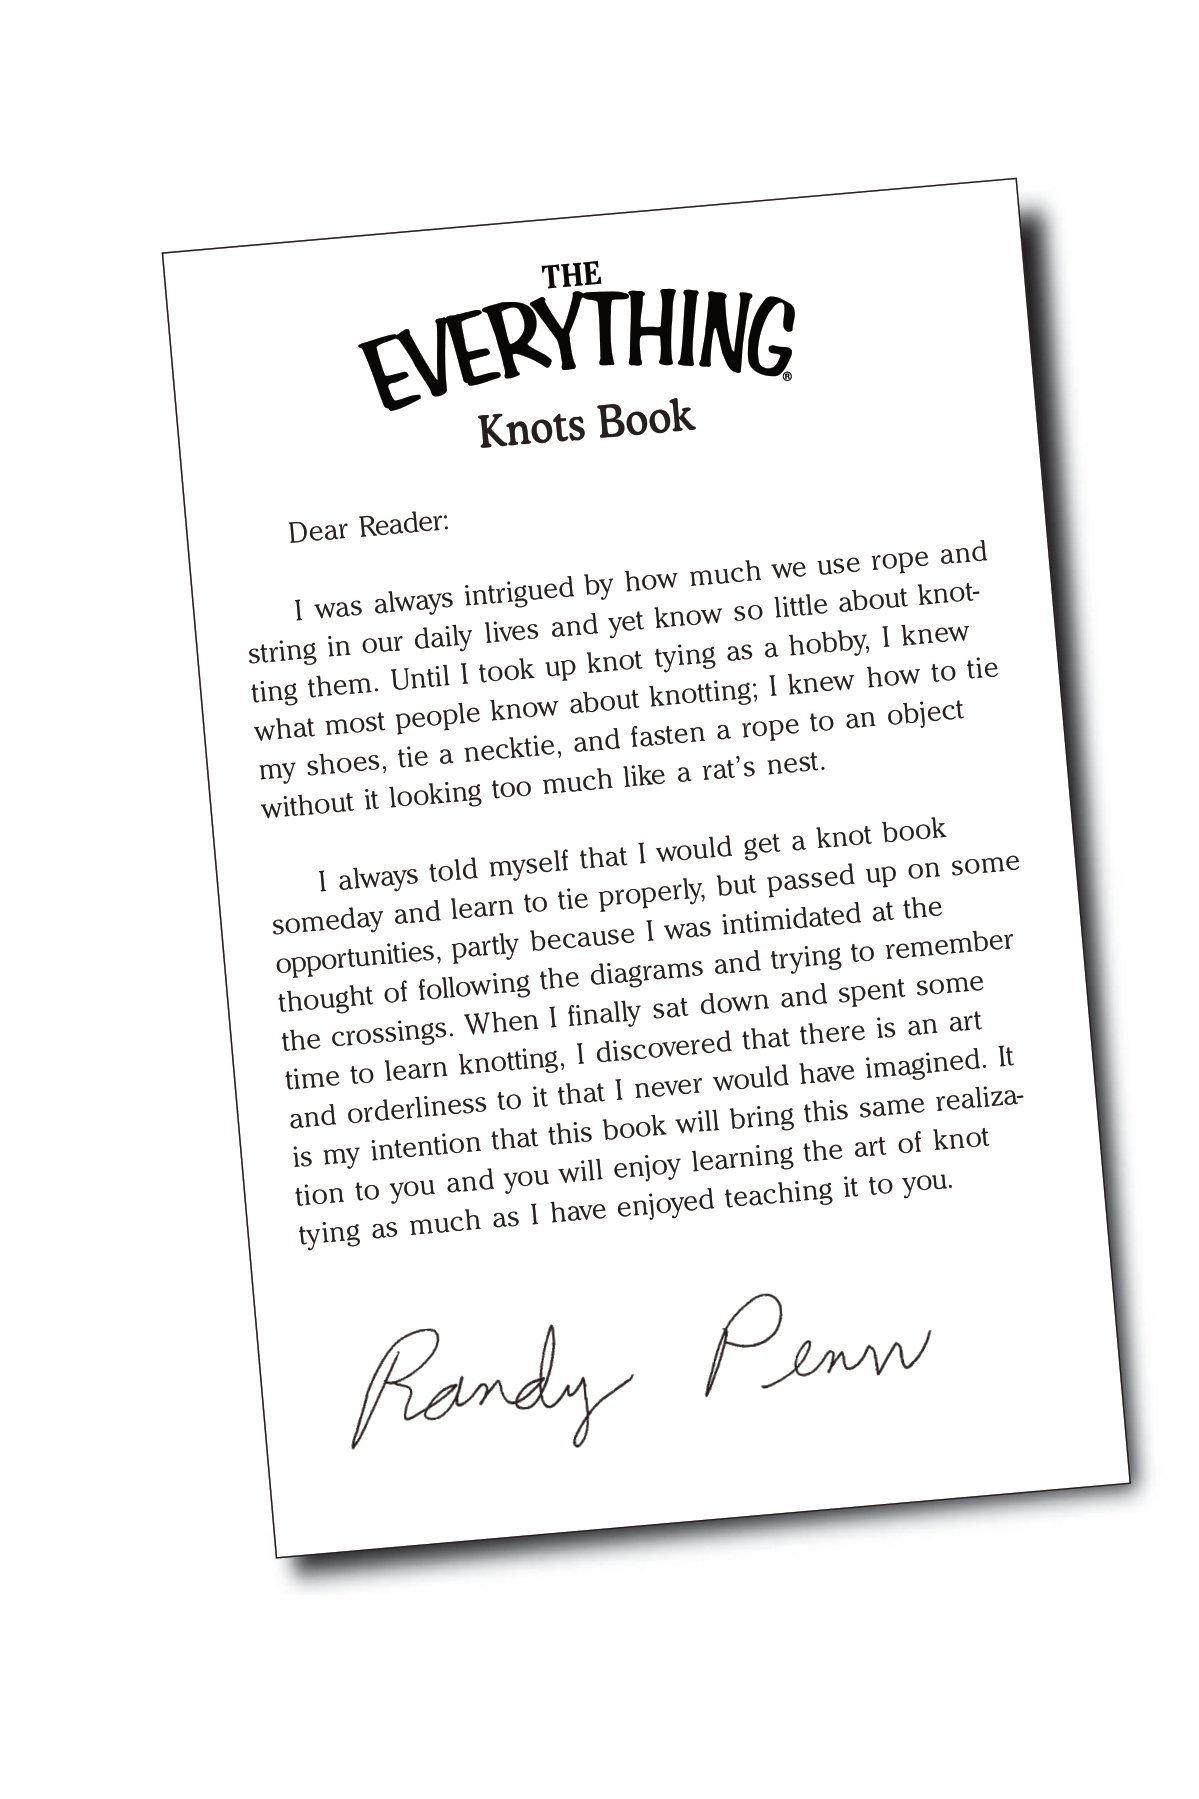 THE
EVERYTHING®
Knots Book
Dear Reader:
I was always intrigued by how much we use rope and
string in our daily lives and yet know so little about knot-
ting them. Until I took up knot tying as a hobby, I knew
what most people know about knotting; I knew how to tie
my shoes, tie a necktie, and fasten a rope to an object
without it looking too much like a rat's nest.
I always told myself that I would get a knot book
someday and learn to tie properly, but passed up on some
opportunities, partly because I was intimidated at the
thought of following the diagrams and trying to remember
the crossings. When I finally sat down and spent some
time to learn knotting, I discovered that there is an art
and orderliness to it that I never would have imagined. It
is my intention that this book will bring this same realiza-
tion to you and you will enjoy learning the art of knot
tying as much as I have enjoyed teaching it to you.
Randy Penn